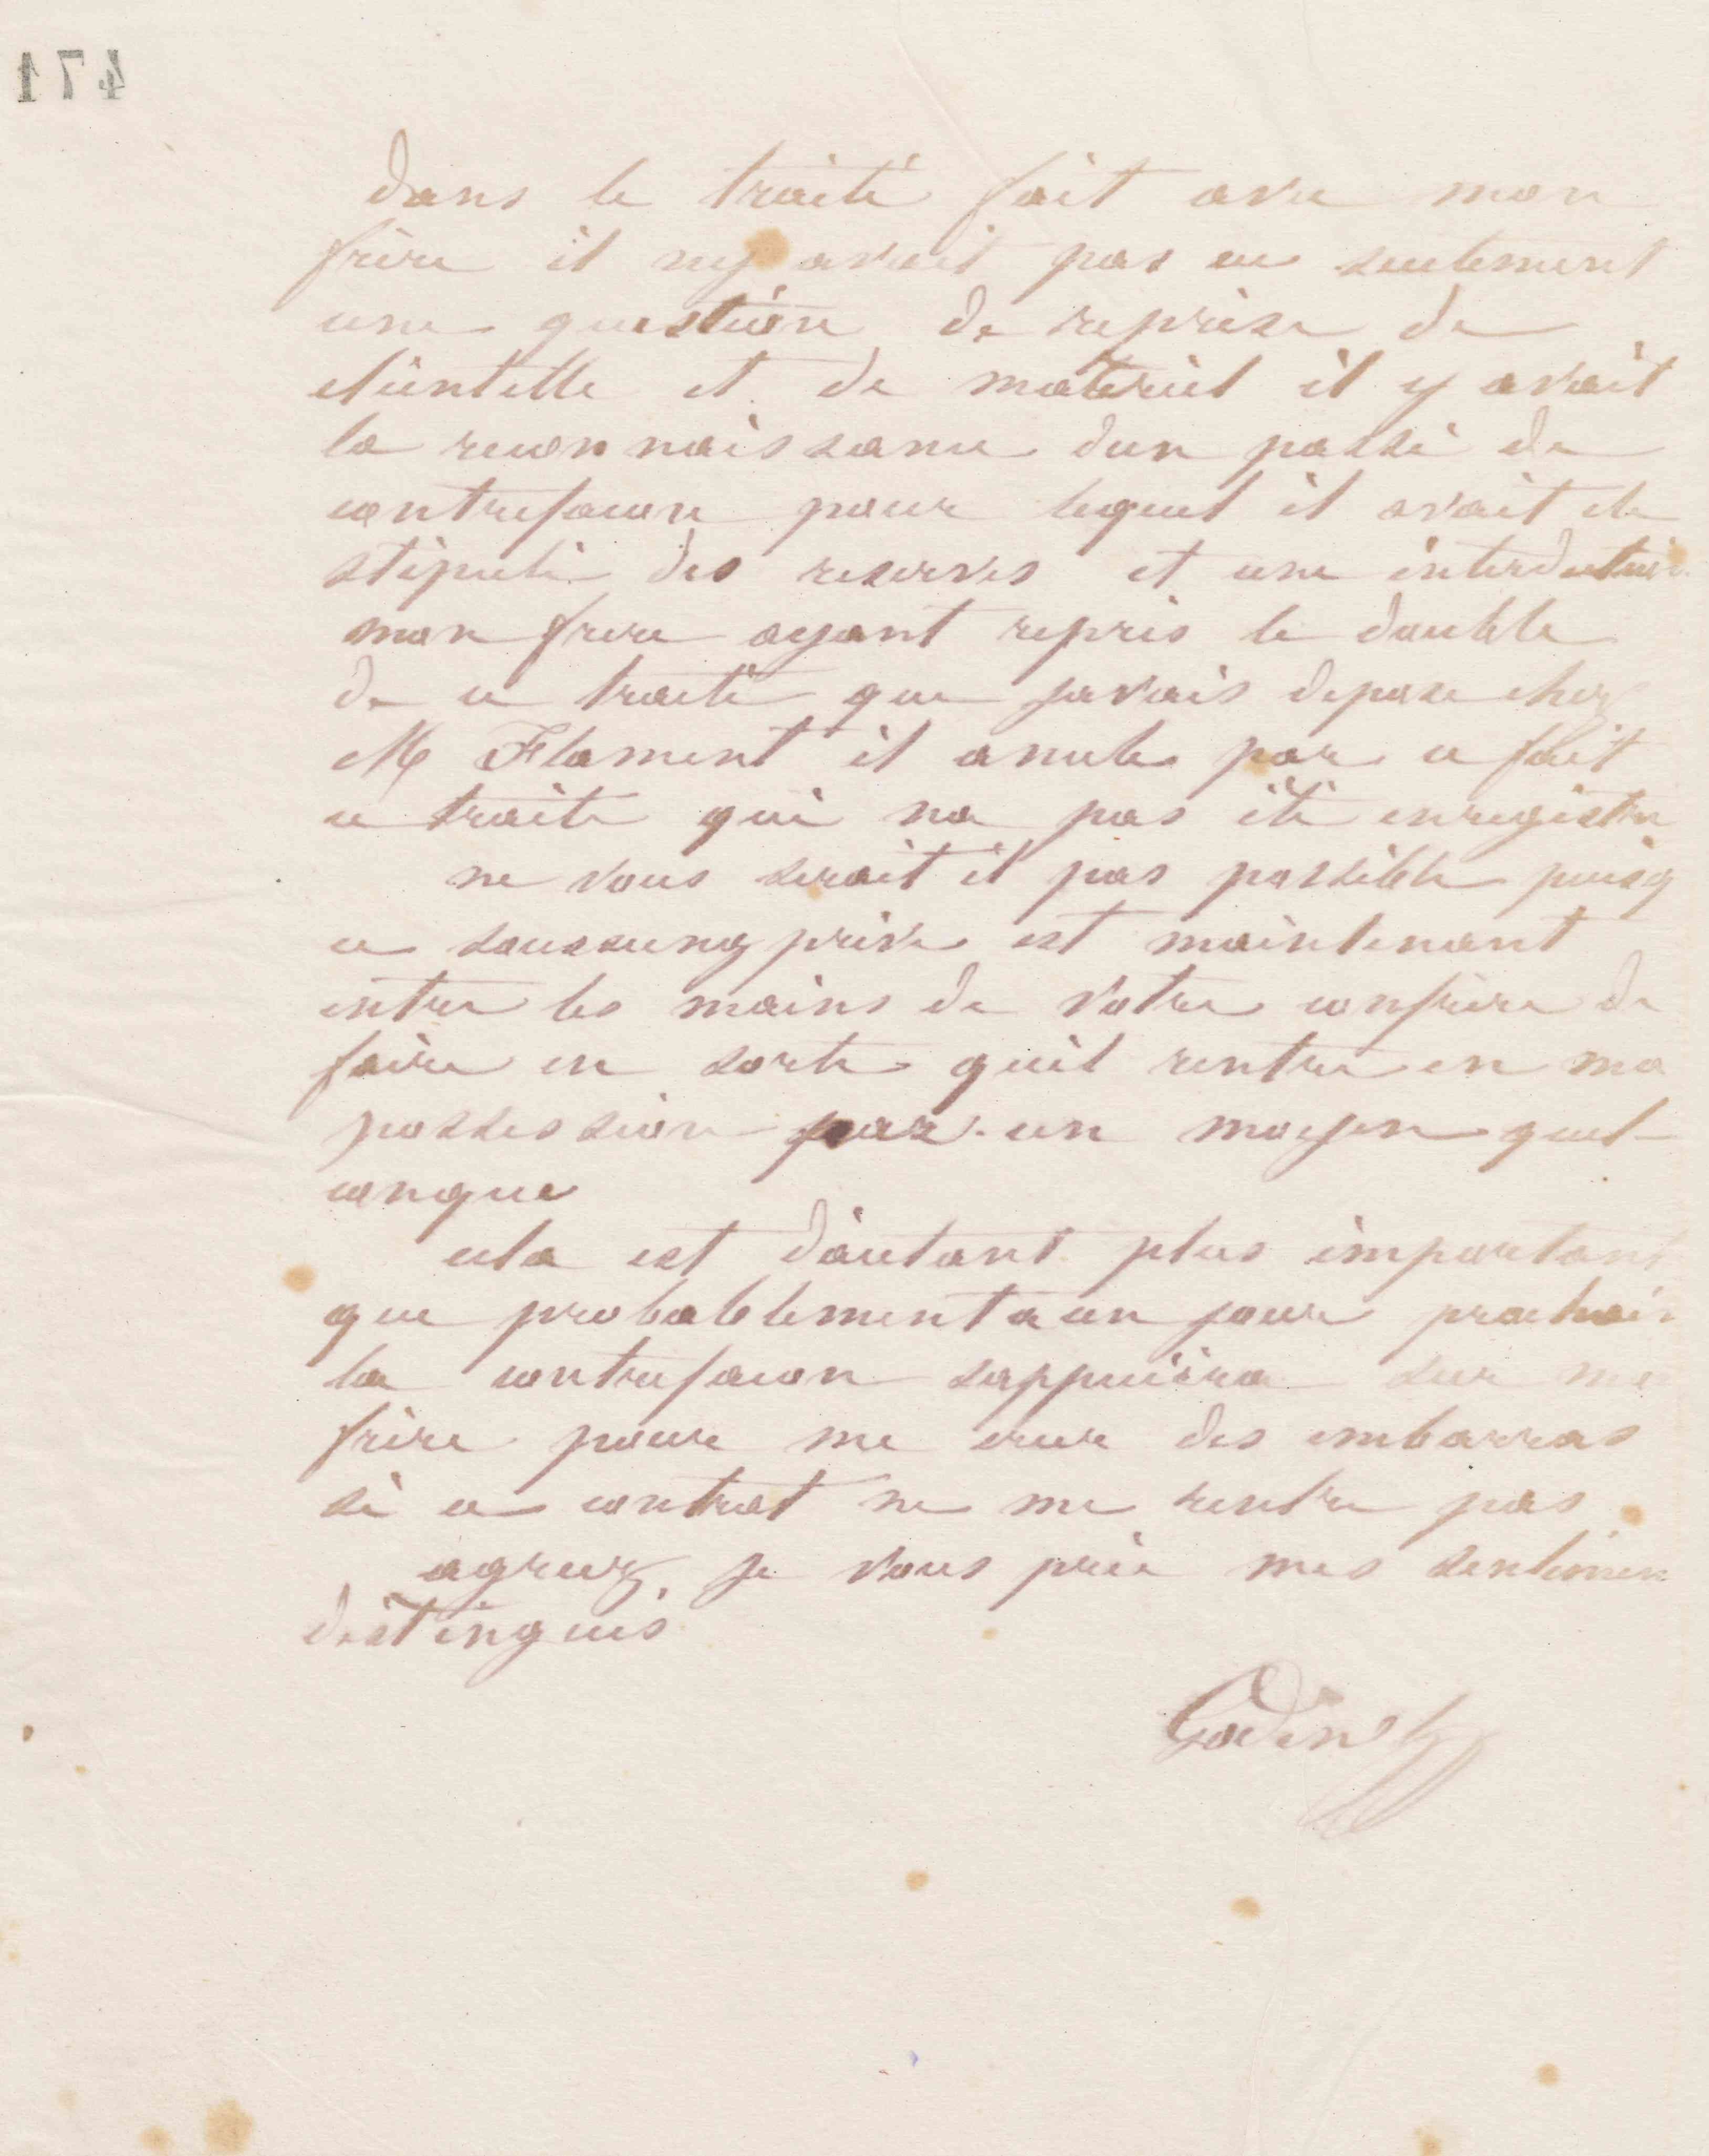 471
dans le traité fait avec mon
frère il ny avait pas eu seulement
une question de reprise de
clientelle et de materiel il y avait
la reconnaissance dun passé de
contrefacon pour lequel il avait ete
stipulé des reserves et une interdiction
mon frere ayant repris le double
de ce traité que javais depose chez
M Flament il anule par ce fait
ce traite qui na pas été enregistre
ne vous serait il pas possible puisq
ce soussung privé est maintenant
entre les mains de votre confrère de
faire en sorte quil rentre en ma
possession par un moyen quel
conque
cela est dautant plus important
que probablement a un jour prochain
la contrefacon sappuiera sur mon
frère pour me creer des embarras
si ce contrat ne me rentre pas
agreez, je vous prie mes sentimen
distingués
Godin